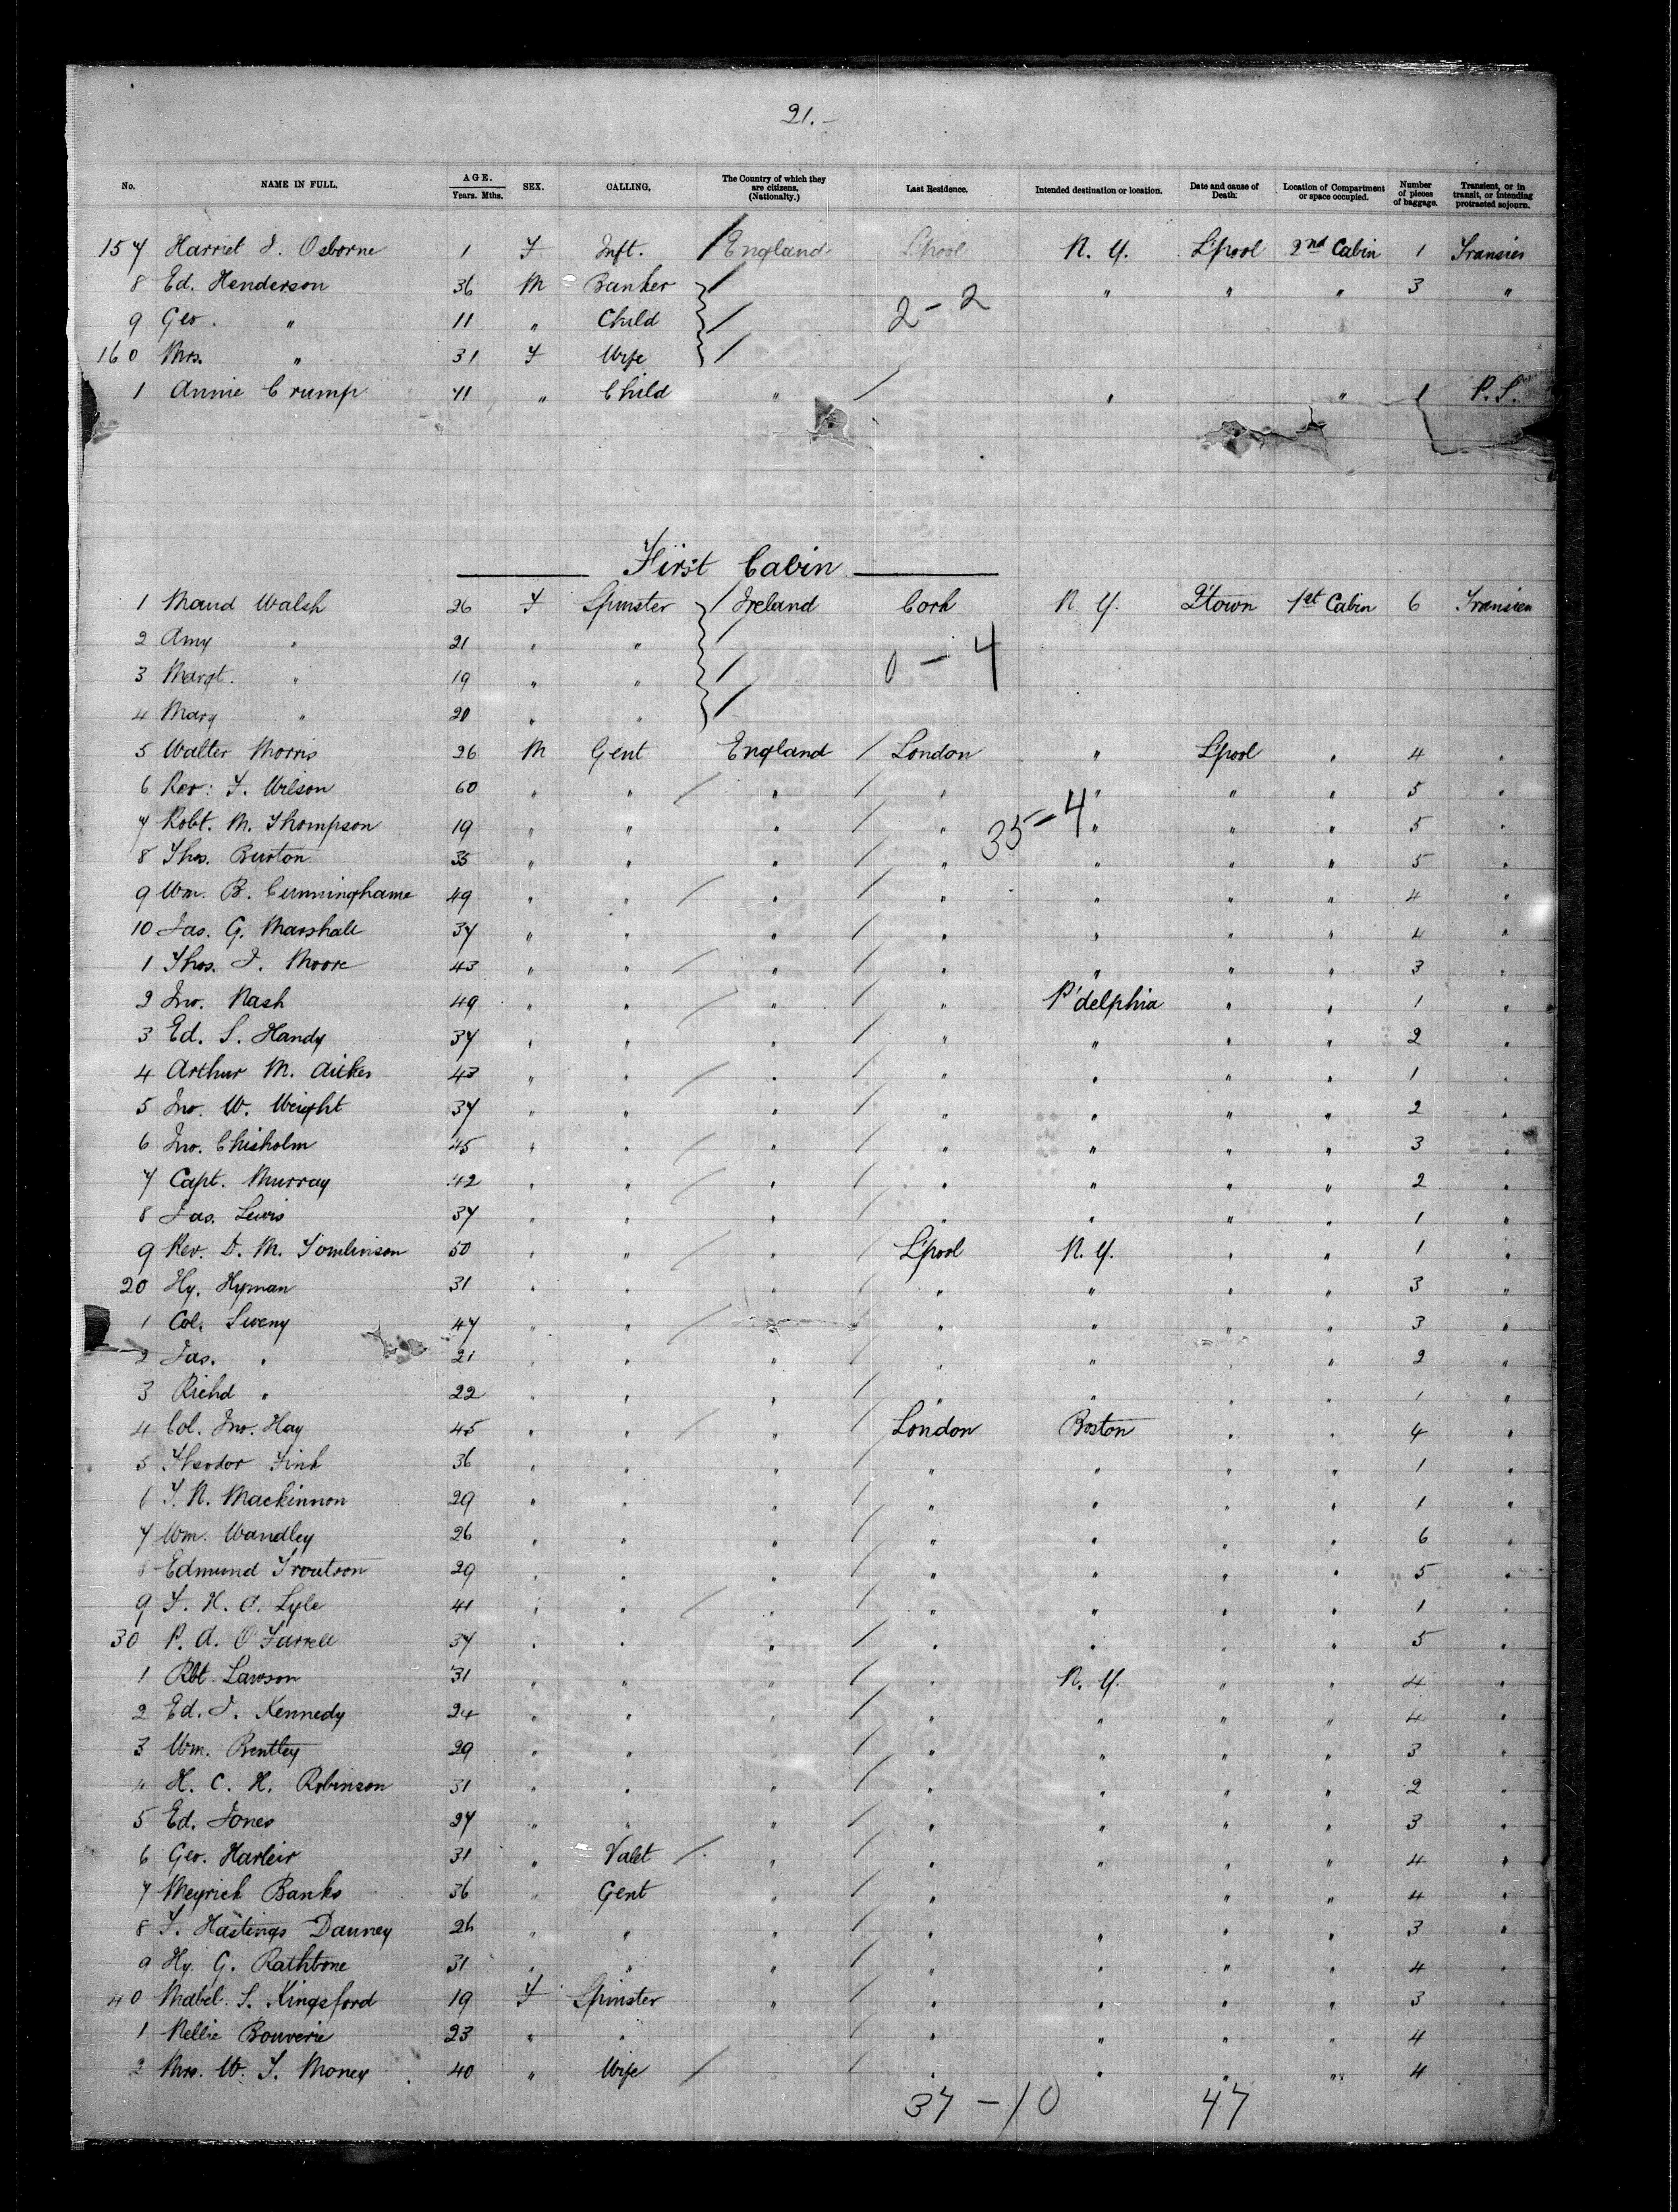 21.-
No. NAME IN FULL. AGE. Years. Mths. SEX. CALLING. The Country of which they are citizens, (Nationalty.) Last Residence. Intended destination or location. Date and cause of Death. Location of Compartment or space occupied. Number of pieces of baggage. Transient, or in transit, or intending protracted sojourn.
157 Harriet J. Osborne 1 F Inft. / England L'pool N.Y. L'pool 2nd Cabin 1 Transien
8 Ed. Henderson 36 M Banker / " " " 3 "
9 Geo. " 11 " Child / 2-2
160 Mrs. " 31 F Wife /
1 Annie Crump 41 " Child " / " " 1 P.S.
First Cabin
1 Maud Walsh 26 F Spinster / Ireland Cork N.Y. Q'town 1st Cabin 6 Transien
2 Amy " 21 " " /
3 Margt. " 19 " " / 0-4
4 Mary " 20 " " /
5 Walter Morris 26 M Gent England / London " L'pool " 4 "
6 Rev: F. Wilson 60 " " / " / " " " " 5 "
7 Robt. M. Thompson 19 " " " / " 35-4 " " " 5 "
8 Thos. Burton 35 " " " / " " " " 5 "
9 Wm. B. Cunninghame 49 " " / " / " " " " 4 "
10 Jas. G. Marshall 37 " " " / " " " " 4 "
1 Thos. J. Moore 43 " " / " / " " " " 3 "
2 Jno. Nash 49 " " / " / " P'delphia " " 1 "
3 Ed. S. Handy 37 " " " / " " " " 2 "
4 Arthur M. 43 " " / " / " " " " 1 "
5 Jno. W. Weight 37 " " " / " " " " 2 "
6 Jno. Chisholm 45 " " / " / " " " " 3 "
7 Capt. Murray 42 " " / " / " " " " 2 "
8 Jas. Lewis 37 " " " / " " " " 1 "
9 Rev. D. M. Tomlinson 50 " " / " / L'pool N.Y. " " 1 "
20 Hy. Hyman 31 " " " / " " " " 3 "
1 Col. Sweny 47 " " / " / " " " " 3 "
2 Jas. " 21 " " " / " " " " 2 "
3 Richd " 22 " " " / " " " " 1 "
4 Col. Jno. Hay 45 " " / " / London Boston " " 4 "
5 Theodor Fink 36 " " " / " " " " 1 "
6 T. N. Mackinnon 29 " " " / " " " " 1 "
7 Wm. Wandley 26 " " " / " " " " 6 "
8 Edmund Troutson 29 " " " / " " " " 5 "
9 F. H. A. Lyle 41 " " / " / " " " " 1 "
30 P. A. O'Farrell 37 " " " / " " " " 5 "
1 Rbt. Lawson 31 " " " / " N.Y. " " 4 "
2 Ed. J. Kennedy 24 " " " / " " " " 4 "
3 Wm. Bentley 29 " " " / " " " " 3 "
4 H. C. H. Robinson 31 " " " / " " " " 2 "
5 Ed. Jones 27 " " " / " " " " 3 "
6 Geo. 31 " Valet / " / " " " " 4 "
7 Meyrick Banks 36 " Gent " / " " " 4 "
8 F. Hastings Dauney 26 " " " / " " " " 3 "
9 Hy. G. Rathbone 31 " " " / " " " " 4 "
40 Mabel S. Kingsford 19 F Spinster " / " " " " 3 "
1 Nellie Bouverie 23 " " / " " " " 4
2 Mrs. W. T. Money 40 " Wife / / " " " " 4
37-10 47